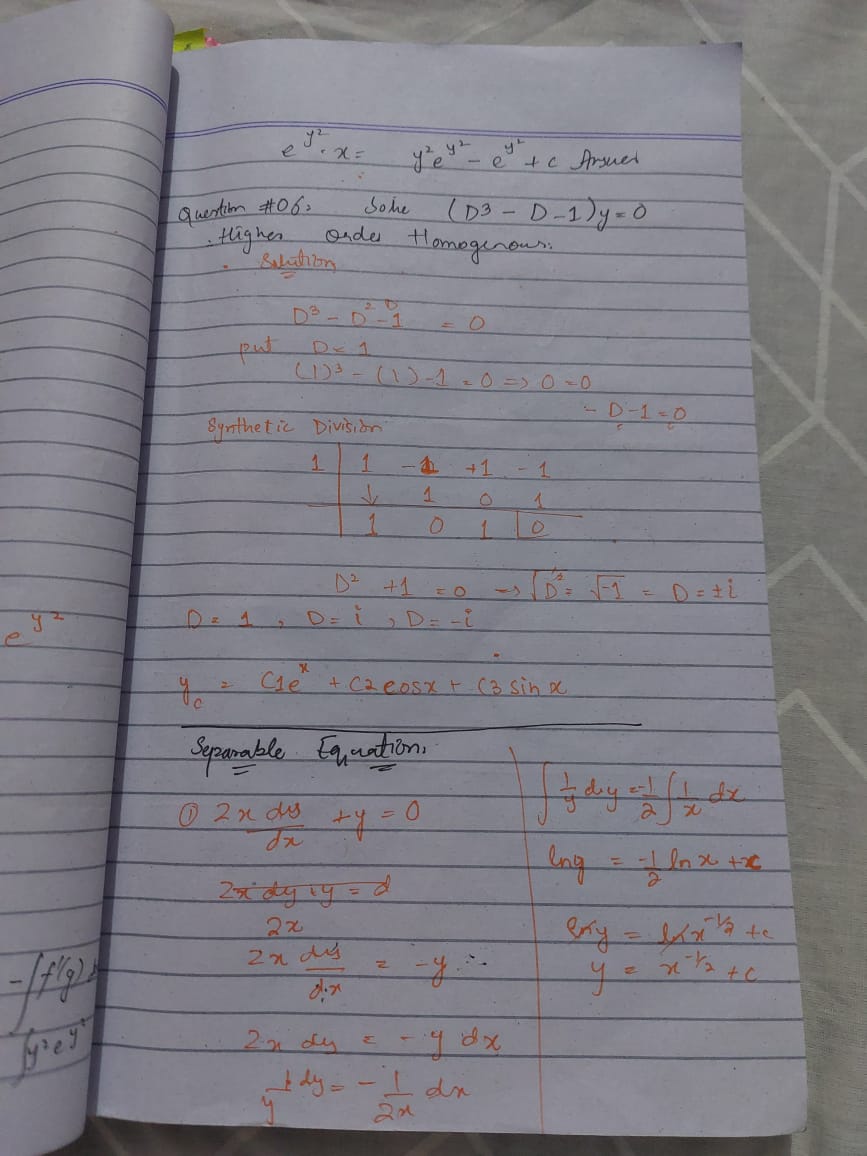 e^{y²}. x = y²e^{y²} - e^{y²} + c Answer
Question #06: Solve (D3 - D - 1)y = 0
. Higher order Homogenous.
. Solution
D³ - D² - 1 = 0
put D = 1
(1)³ - (1) - 1 = 0 => 0 = 0
- D - 1 = 0
Synthetic Division
1 | 1 -1 +1 -1
↓ 1 0 1
1 0 1 | 0
D² + 1 = 0 → √D² = √-1 = D = ±i
D = 1, D = i, D = -i
y_c = C1e^x + C2 cosx + C3 sin x
Separable Equation.
① 2x dy/dx + y = 0
2x dy + y = d
2x
2x dy/dx = -y
2x dy = -y dx
1/y dy = - 1/2x dx
∫ 1/y dy = -1/2 ∫ 1/x dx
lny = -1/2 ln x + c
ln y = ln x^{-1/2} + c
y = x^{-1/2} + c
e^{y²}
-∫f'(g)
∫y²e^{y²}